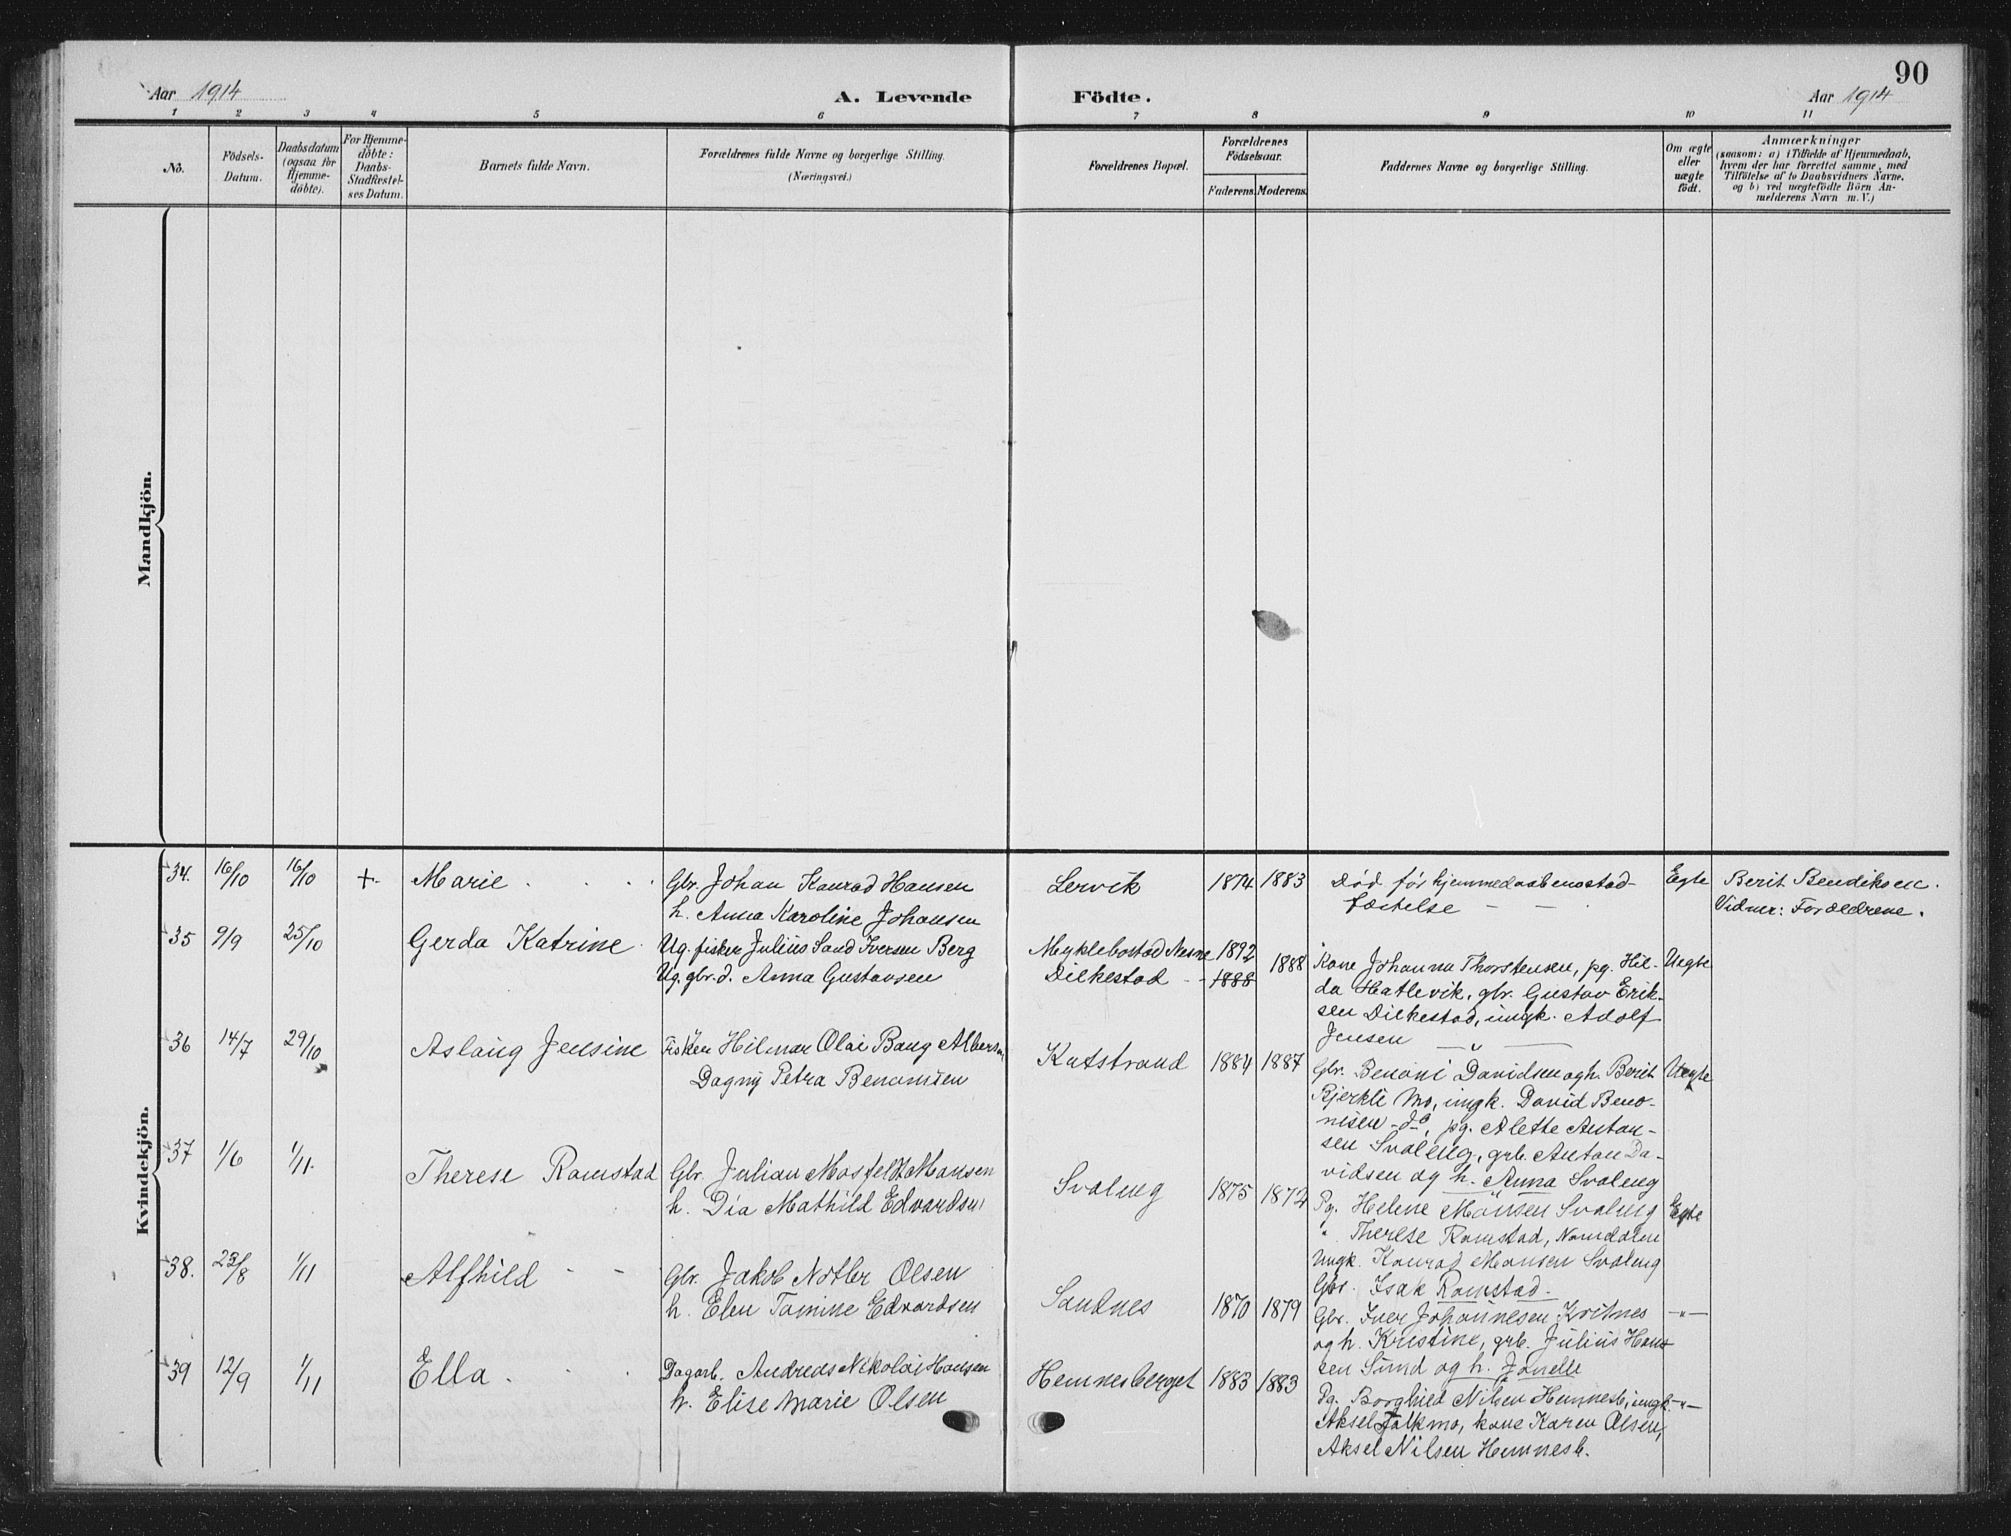 90
Aar 1914
A. Levende Födte.
Aar 1914
1 2 3 4 5 6 7 8 9 10 11
No.
Födsels-
Datum.
Daabsdatum
(ogsaa for
Hjemme-
döbte).
For Hjemme-
döbte:
Daabs-
Stadfæstel-
ses Datum.
Barnets fulde Navn.
Forældrenes fulde Navne og borgerlige Stilling.
(Næringsvei.)
Forældrenes Bopæl.
Forældrenes
Födselsaar.
Faderens. Moderens.
Faddernes Navne og borgerlige Stilling.
Om ægte
eller
uægte
født.
Anmærkninger
(saasom: a) i Tilfælde af Hjemmedaab,
hvem der har forrettet samme, med
Tilföielse af to Daabsvidners Navne.
og b) ved uægtefödte Börn An-
melderens Navn m. V.)
Mandkjön.
Kvindekjön.
34. 16/10 16/10 + Marie
Gbr. Johan Konrad Hansen
h. Anna Karoline Johansen
Lervik 1874 1883
Död för hjemmedaabensstad-
fæstelse
Egte
Berit Bendiksen.
Vidner: Forældrene.
35 9/9 25/10 Gerda Katrine
Ug. fisker Julius Sand Iversen Berg
Ug. gbr. d. Anna Gustavsen
Myklebostad Nesne 1892
Dilkestad 1888 1888
Kone Johanna Thorstensen, pg. Hil-
da Hatlevik, gbr. Gustav Erik-
sen Dilkestad, ungk. Adolf
Jensen
Uegte
36 14/7 29/10 Aslaug Jensine
Fisker Hilmar Olai Bang Albersen
Dagny Petra Benonisen
Kutstrand 1884 1887
Gbr. Benoni Davidsen og h. Berit
Bjerkli Mo, ungk. David Beno-
nisen do, pg. Alette Anton-
sen Svaleng, grb. Anton Da-
vidsen og h. Anna Svaleng
Uegte
37 1/6 1/11. Therese Ramstad
Gbr. Julian Mosfeldt Monsen
h. Dia Mathild Edvardsen
Svaleng 1875 1872
Pg. Helene Monsen Svaleng
" Therese Ramstad, Namdalen
Ungk. Konrad Monsen Svaleng
Gbr. Isak Ramstad.
Egte
38. 23/8 1/11 Alfhild
Gbr. Jakob Notler Olsen
h. Elen Tomine Edvardsen
Sandnes 1870 1879
Gbr. Iver Johannesen Kvitnes
og h. Kristine, grb. Julius Han-
sen Sund og h. Janelle
-"-
39 12/9 1/11 Ella
Dagarb. Andreas Nikolai Hansen
h. Elise Marie Olsen
Hemnesberget 1883 1883
Pg. Borghild Nilsen Hemnesb., ungk.
Aksel Jalkmo, kone Karen Olsen,
Aksel Nilsen Hemnesb.
-"-